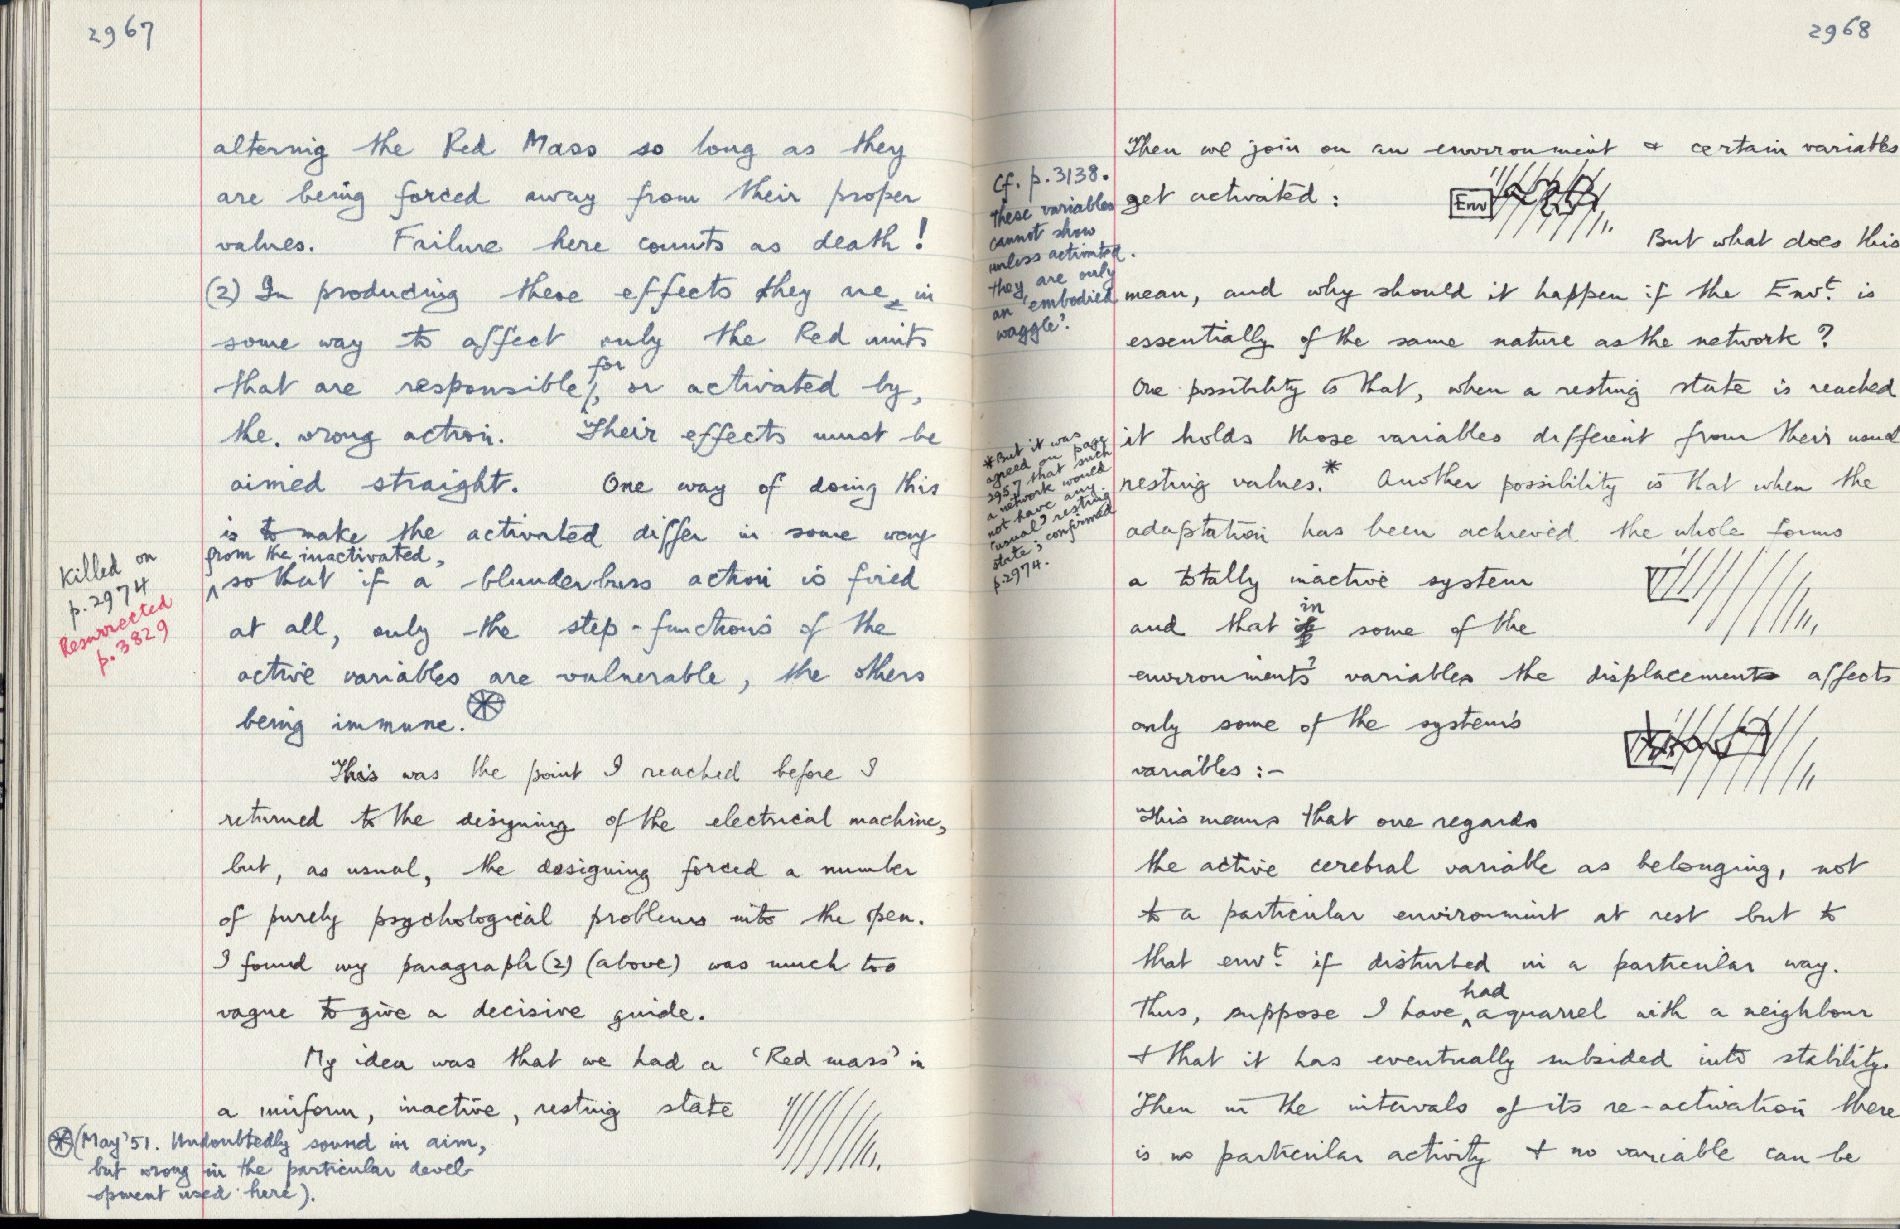 2967
altering the Red Mass so long as they
are being forced away from their proper
values. Failure here counts as death!
(2) In producing these effects they are in
some way to affect only the Red units
that are responsible for, or activated by,
the wrong action. Their effects must be
aimed straight. One way of doing this
is to make the activated differ in some way
from the inactivated,
so that if a blunderbuss action is fired
at all, only the step-functions of the
active variables are vulnerable, the others
being immune.
Killed on
p. 2974
Resurrected
p. 3829
This was the point I reached before I
returned to the designing of the electrical machine,
but, as usual, the designing forced a number
of purely psychological problems into the open.
I found my paragraph (2) (above) was much too
vague to give a decisive guide.
My idea was that we had a 'Red mass' in
a uniform, inactive, resting state
(May '51. Undoubtedly sound in aim,
but wrong in the particular devel-
opment used here).
2968
Then we join on an environment & certain variables
get activated:
Env
But what does this
mean, and why should it happen if the Envt. is
essentially of the same nature as the network?
One possibility is that, when a resting state is reached
it holds those variables different from their usual
resting values.* Another possibility is that when the
adaptation has been achieved the whole forms
a totally inactive system
and that in some of the
environment's variables the displacement affects
only some of the system's
variables :-
This means that one regards
the active cerebral variable as belonging, not
to a particular environment at rest but to
that envt. if disturbed in a particular way.
Thus, suppose I have had a quarrel with a neighbour
& that it has eventually subsided into stability.
Then in the intervals of its re-activation there
is no particular activity & no variable can be
Cf. p. 3138.
These variables
cannot show
unless activated.
they are only
an 'embodied
waggle'.
*But it was
agreed on page
2957 that such
a network would
not have any
'usual' resting
state; confirmed
p. 2974.